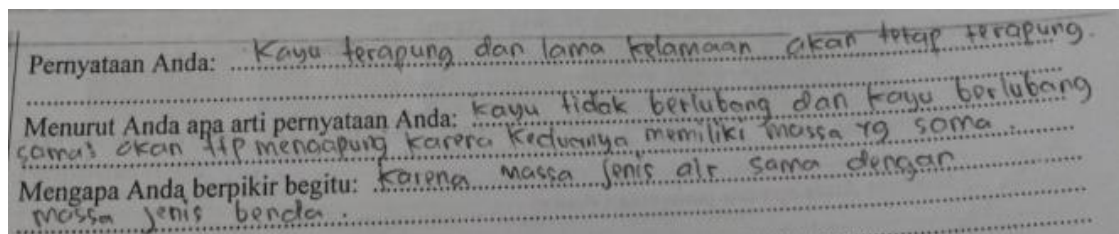 Pernyataan Anda: Kayu terapung dan lama kelamaan akan tetap terapung.
Menurut Anda apa arti pernyataan Anda: kayu tidak berlubang dan kayu berlubang
sama² akan ttp mengapung karena keduanya memiliki massa yg sama.
Mengapa Anda berpikir begitu: Karena massa jenis air sama dengan
massa jenis benda.